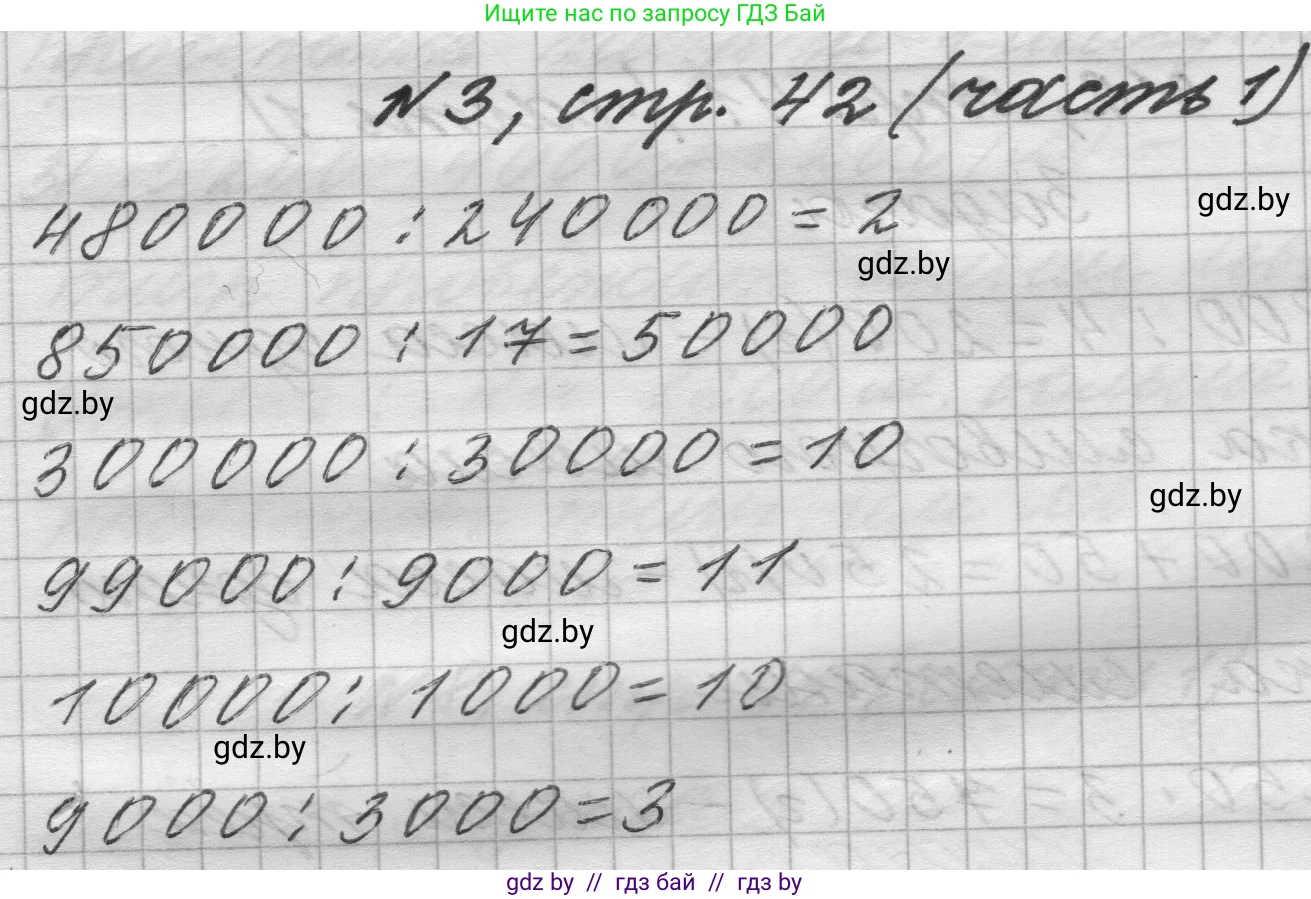 Ищите нас по запросу ГДЗ Бай
№3, стр. 42 (часть 1)
480000 : 240000 = 2
gdz.by
gdz.by
850000 : 17 = 50000
gdz.by
300000 : 30000 = 10
gdz.by
99000 : 9000 = 11
gdz.by
10000 : 1000 = 10
gdz.by
9000 : 3000 = 3
gdz by // гдз бай // гдз by